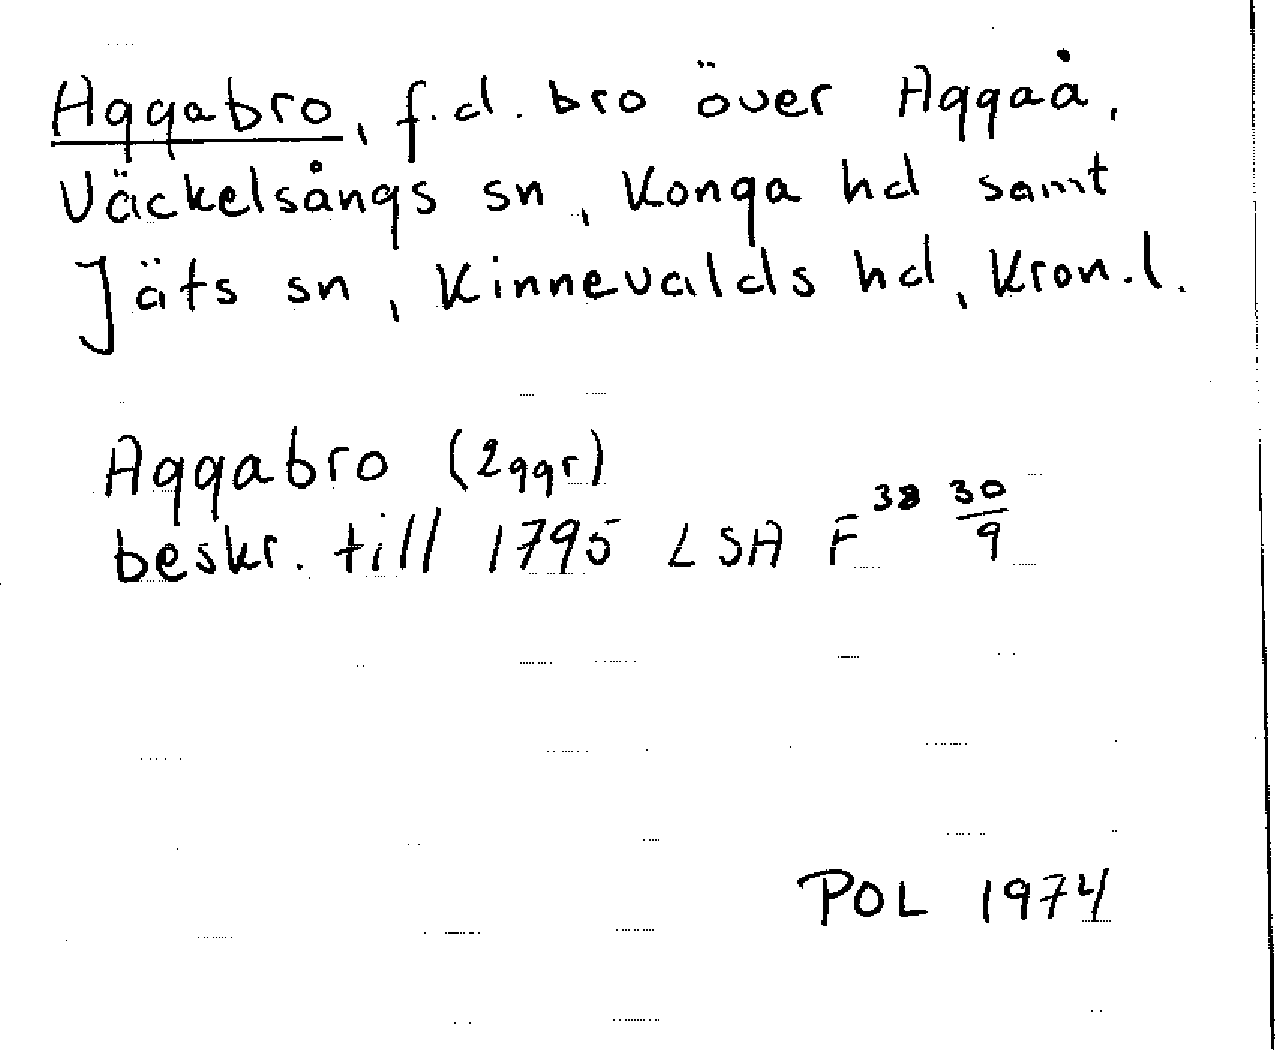 Aggabro, f.d. bro över Aggaå,
Väckelsångs sn, Konga hd samt
Jäts sn, Kinnevalds hd, Kron.l.
Aggabro (2ggr)
beskr. till 1795 LSA F 38 30/9
POL 1974